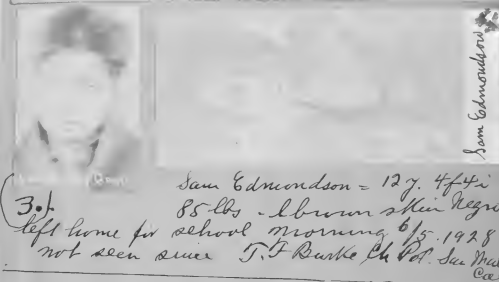 Sam Edmondson
Sam Edmondson = 12 y. 4f4i
3ot 85 lbs - lbrown skin Negro
left home for school morning 6/5-1928
not seen since T. F Burke Ch Pol. San Mat
Cal